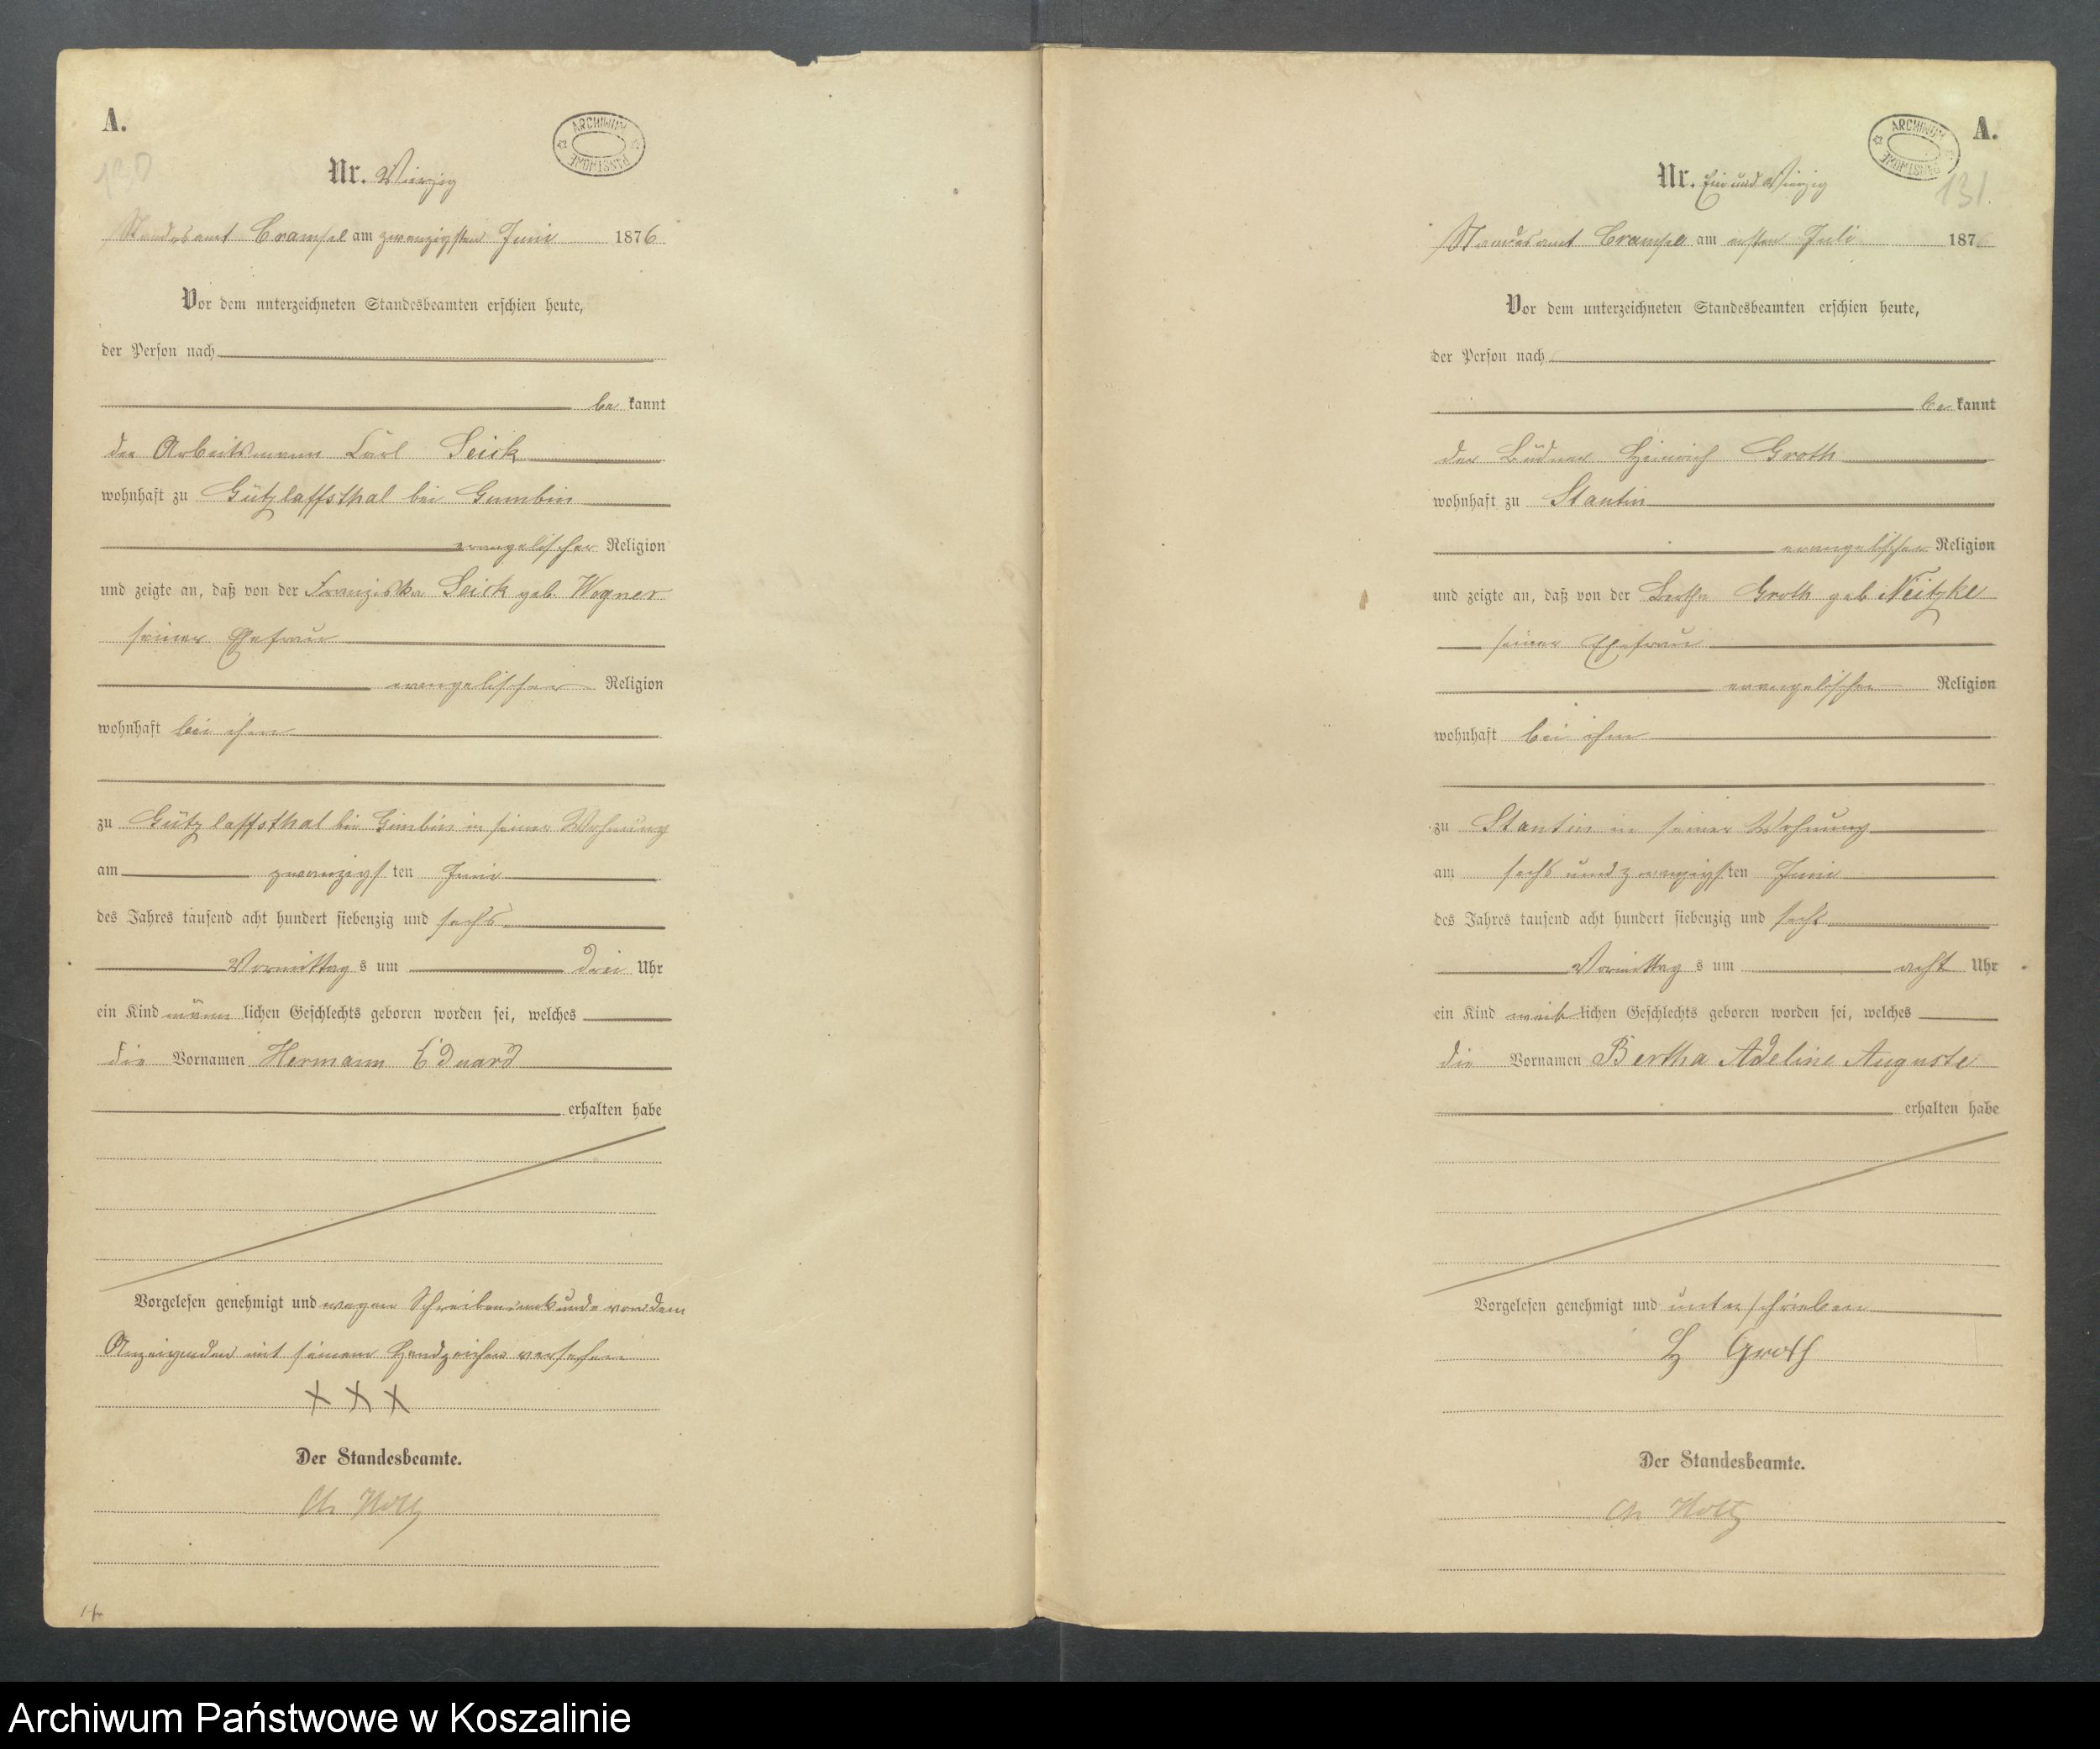 A.
130
ARCHIWUM PAŃSTWOWE
Nr. Vierzig
Standesamt Crampe am zwanzigsten Juni 1876
Vor dem unterzeichneten Standesbeamten erschien heute,
der Person nach
be kannt
der Arbeitsmann Carl Seick
wohnhaft zu Gützlaffsthal bei Gumbin
evangelischer Religion
und zeigte an, daß von der Franziska Seick geb. Wegner
seiner Ehefrau
evangelischer Religion
wohnhaft bei ihm
zu Gützlaffsthal bei Gumbin in seiner Wohnung
am zwanzigsten Juni
des Jahres tausend acht hundert siebenzig und sechs
Vormittag s um drei Uhr
ein Kind männlichen Geschlechts geboren worden sei, welches
die Vornamen Hermann Eduard
erhalten habe
Vorgelesen genehmigt und wegen Schreibensunkunde von dem
Anzeigenden mit seinem Handzeichen versehen
XXX
Der Standesbeamte.
Ch Holtz
A.
131.
ARCHIWUM PAŃSTWOWE
Nr. Ein und Vierzig
Standesamt Crampe am ersten Juli 1876
Vor dem unterzeichneten Standesbeamten erschien heute,
der Person nach
be kannt
der Büdner Heinrich Groth
wohnhaft zu Stantin
evangelischer Religion
und zeigte an, daß von der Groth geb Neitzke
seiner Ehefrau
evangelischer Religion
wohnhaft bei ihm
zu Stantin in seiner Wohnung
am sechs und zwanzigsten Juni
des Jahres tausend acht hundert siebenzig und sechs
Vormittag s um acht Uhr
ein Kind weiblichen Geschlechts geboren worden sei, welches
die Vornamen Bertha Adeline Auguste
erhalten habe
Vorgelesen genehmigt und unterschrieben
H Groth
Der Standesbeamte.
Ch Holtz
Archiwum Państwowe w Koszalinie